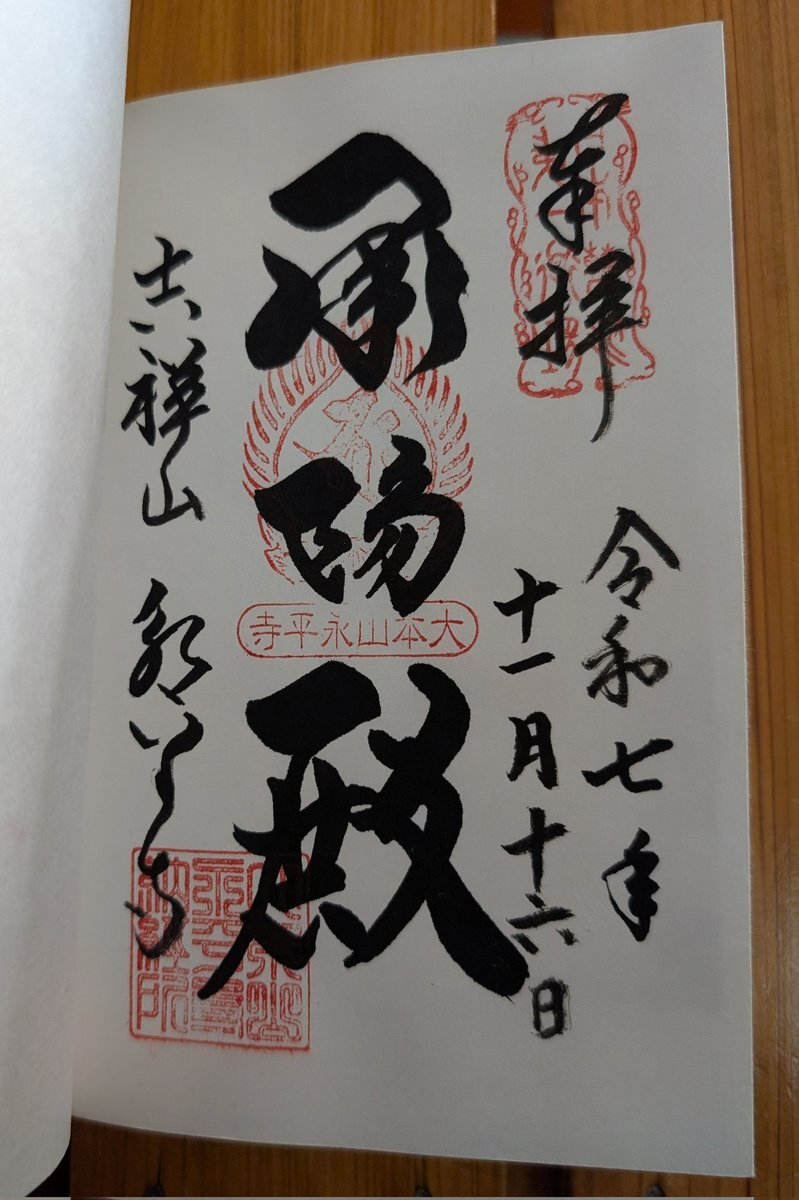 奉拝
令和七年
十一月十六日
承陽殿
大本山永平寺
吉祥山 永平寺